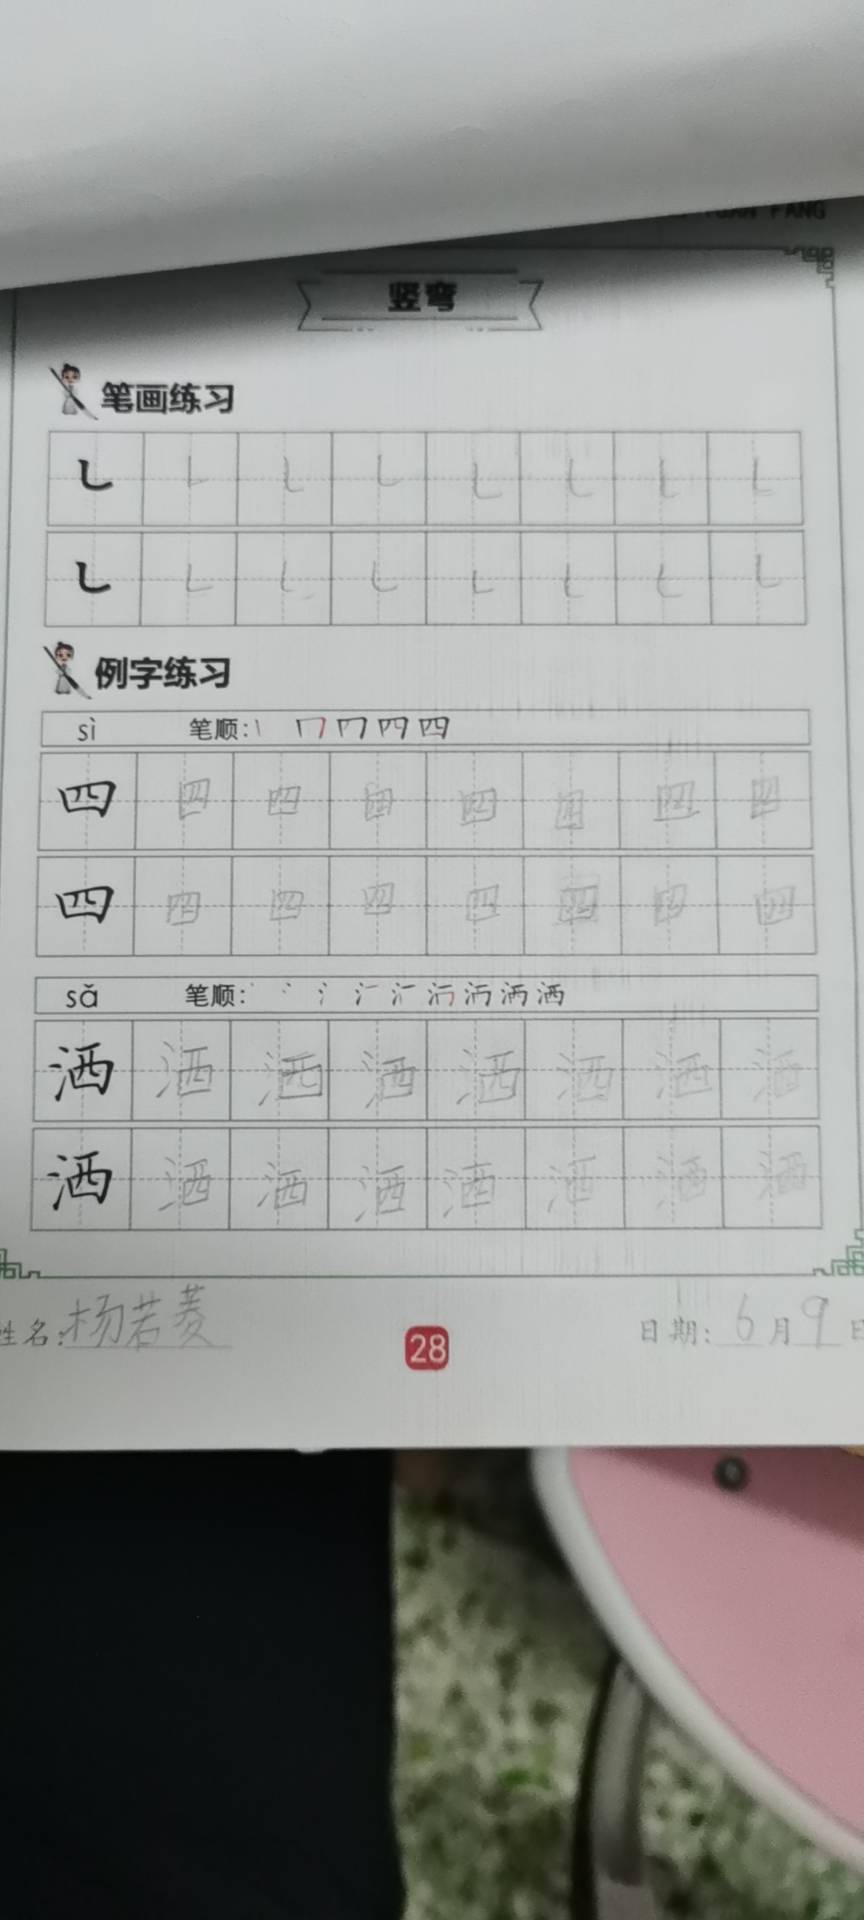 YUAN FANG
竖弯
笔画练习
例字练习
sì 笔顺: 丨 冂 冂 四 四
四 四 四 四 四 四 四 四
四 四 四 四 四 四 四 四
sǎ 笔顺:
洒 洒 洒 洒 洒 洒 洒 洒
洒 洒 洒 洒 洒 洒 洒 洒
姓名: 杨若菱 28 日期: 6月9日